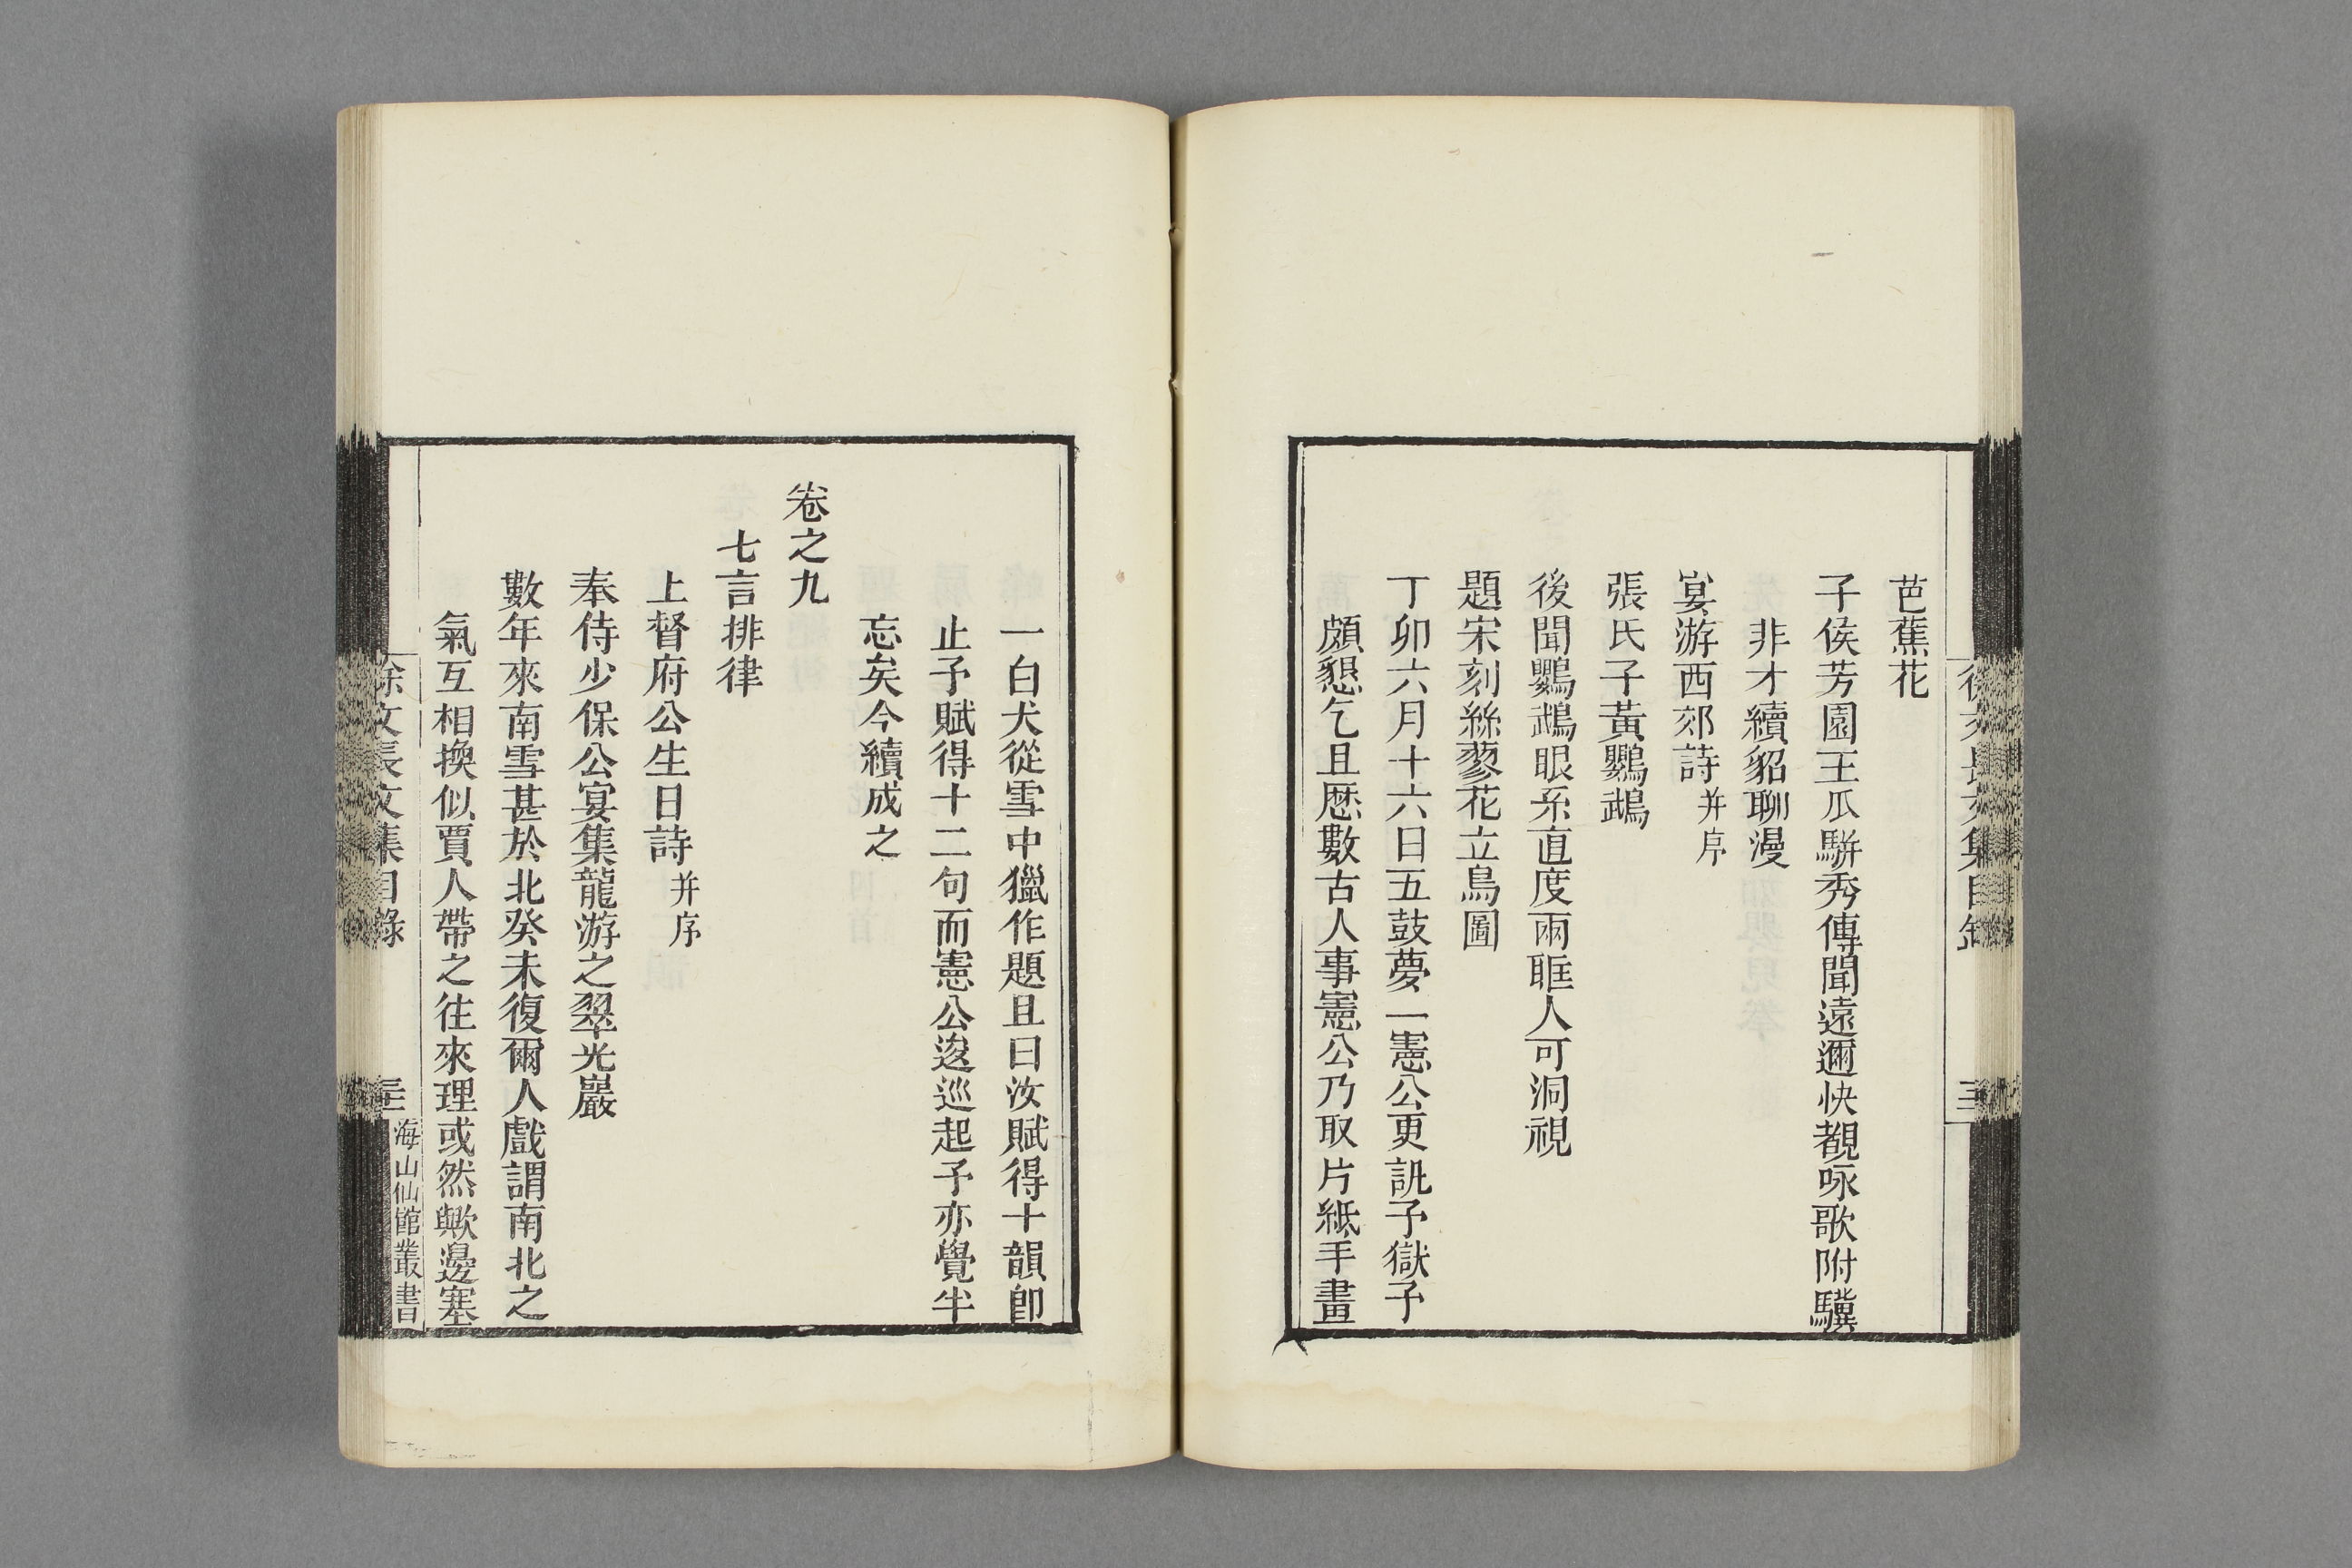 芭蕉花
子侯芳園王瓜駢秀傳聞遠邇快覩咏歌附驥
非才續貂聊漫
宴游西郊詩并序
張氏子黃鸚鵡
後聞鸚鵡眼系直度兩眶人可洞視
題宋刻絲蓼花立鳥圖
丁卯六月十六日五鼓夢一憲公更訊予獄予
頗懇乞且歷數古人事憲公乃取片紙手畫
一白犬從雪中獵作題且曰汝賦得十韻卽
止予賦得十二句而憲公逡巡起予亦覺半
忘矣今續成之
卷之九
七言排律
上督府公生日詩并序
奉侍少保公宴集龍游之翠光巖
數年來南雪甚於北癸未復爾人戲謂南北之
氣互相換似賈人帶之往來理或然歟邊塞
徐文長文集目錄
海山仙館叢書